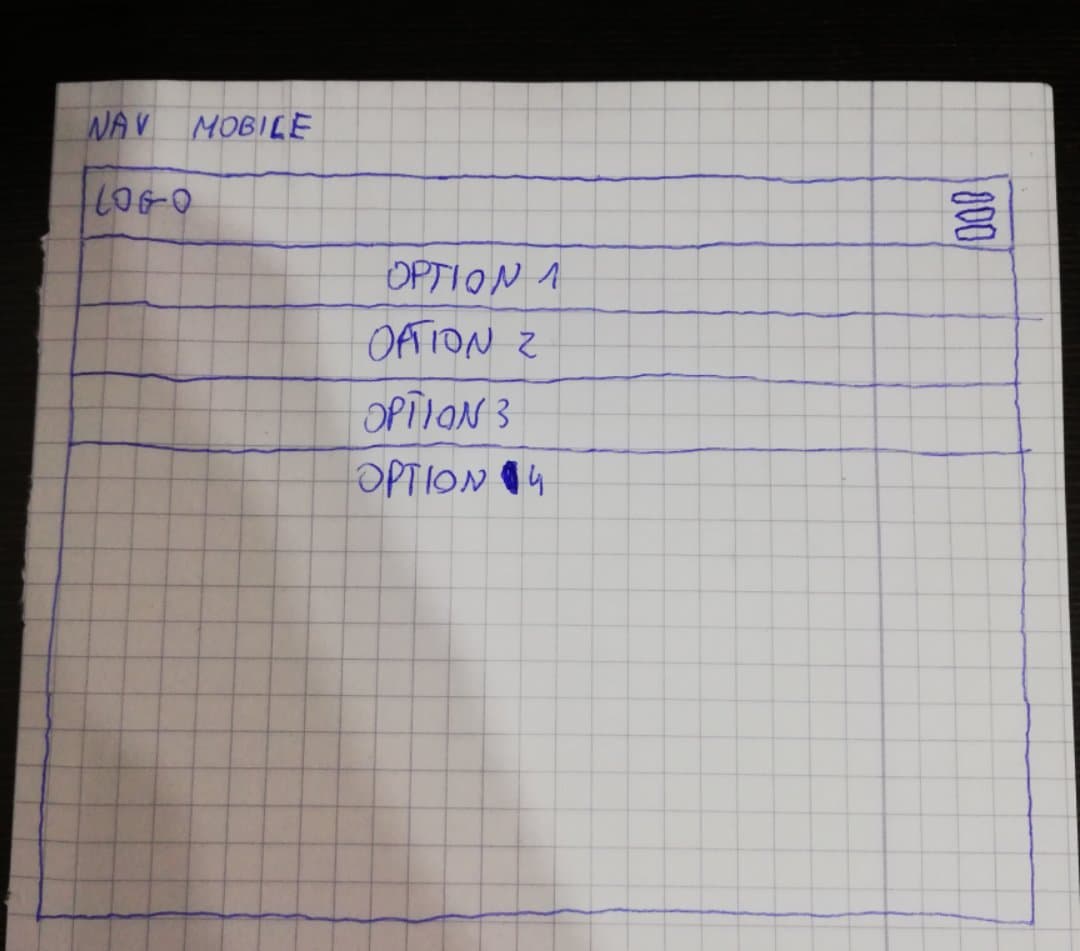 NAV MOBILE
LOGO
OPTION 1
OATION 2
OPTION 3
OPTION 4